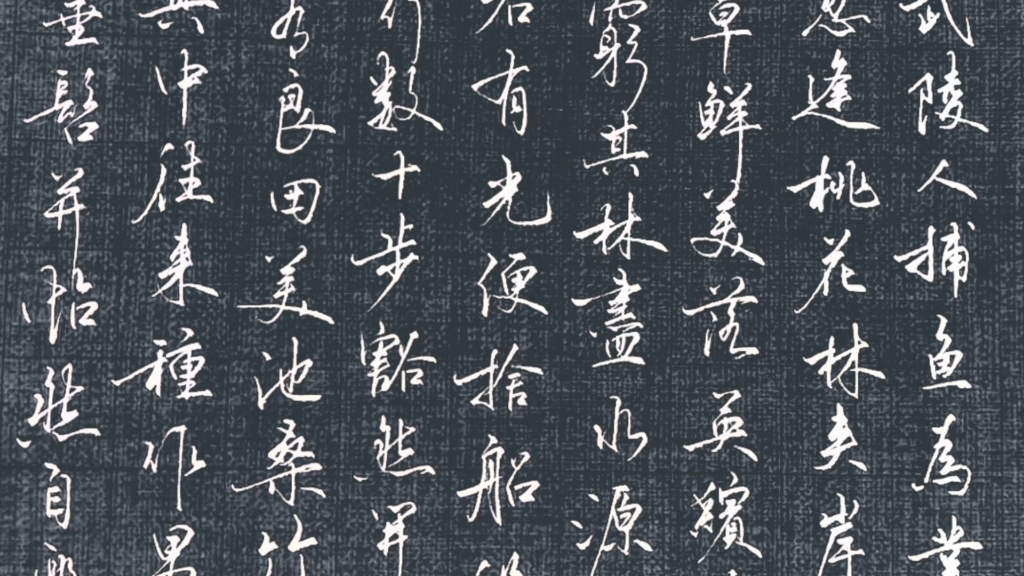 武陵人捕鱼為業
忽逢桃花林夹岸
草鲜美落英缤
窮其林盡水源
若有光便捨船
行数十步豁然开
有良田美池桑竹
其中往来種作男
垂髫并怡然自乐